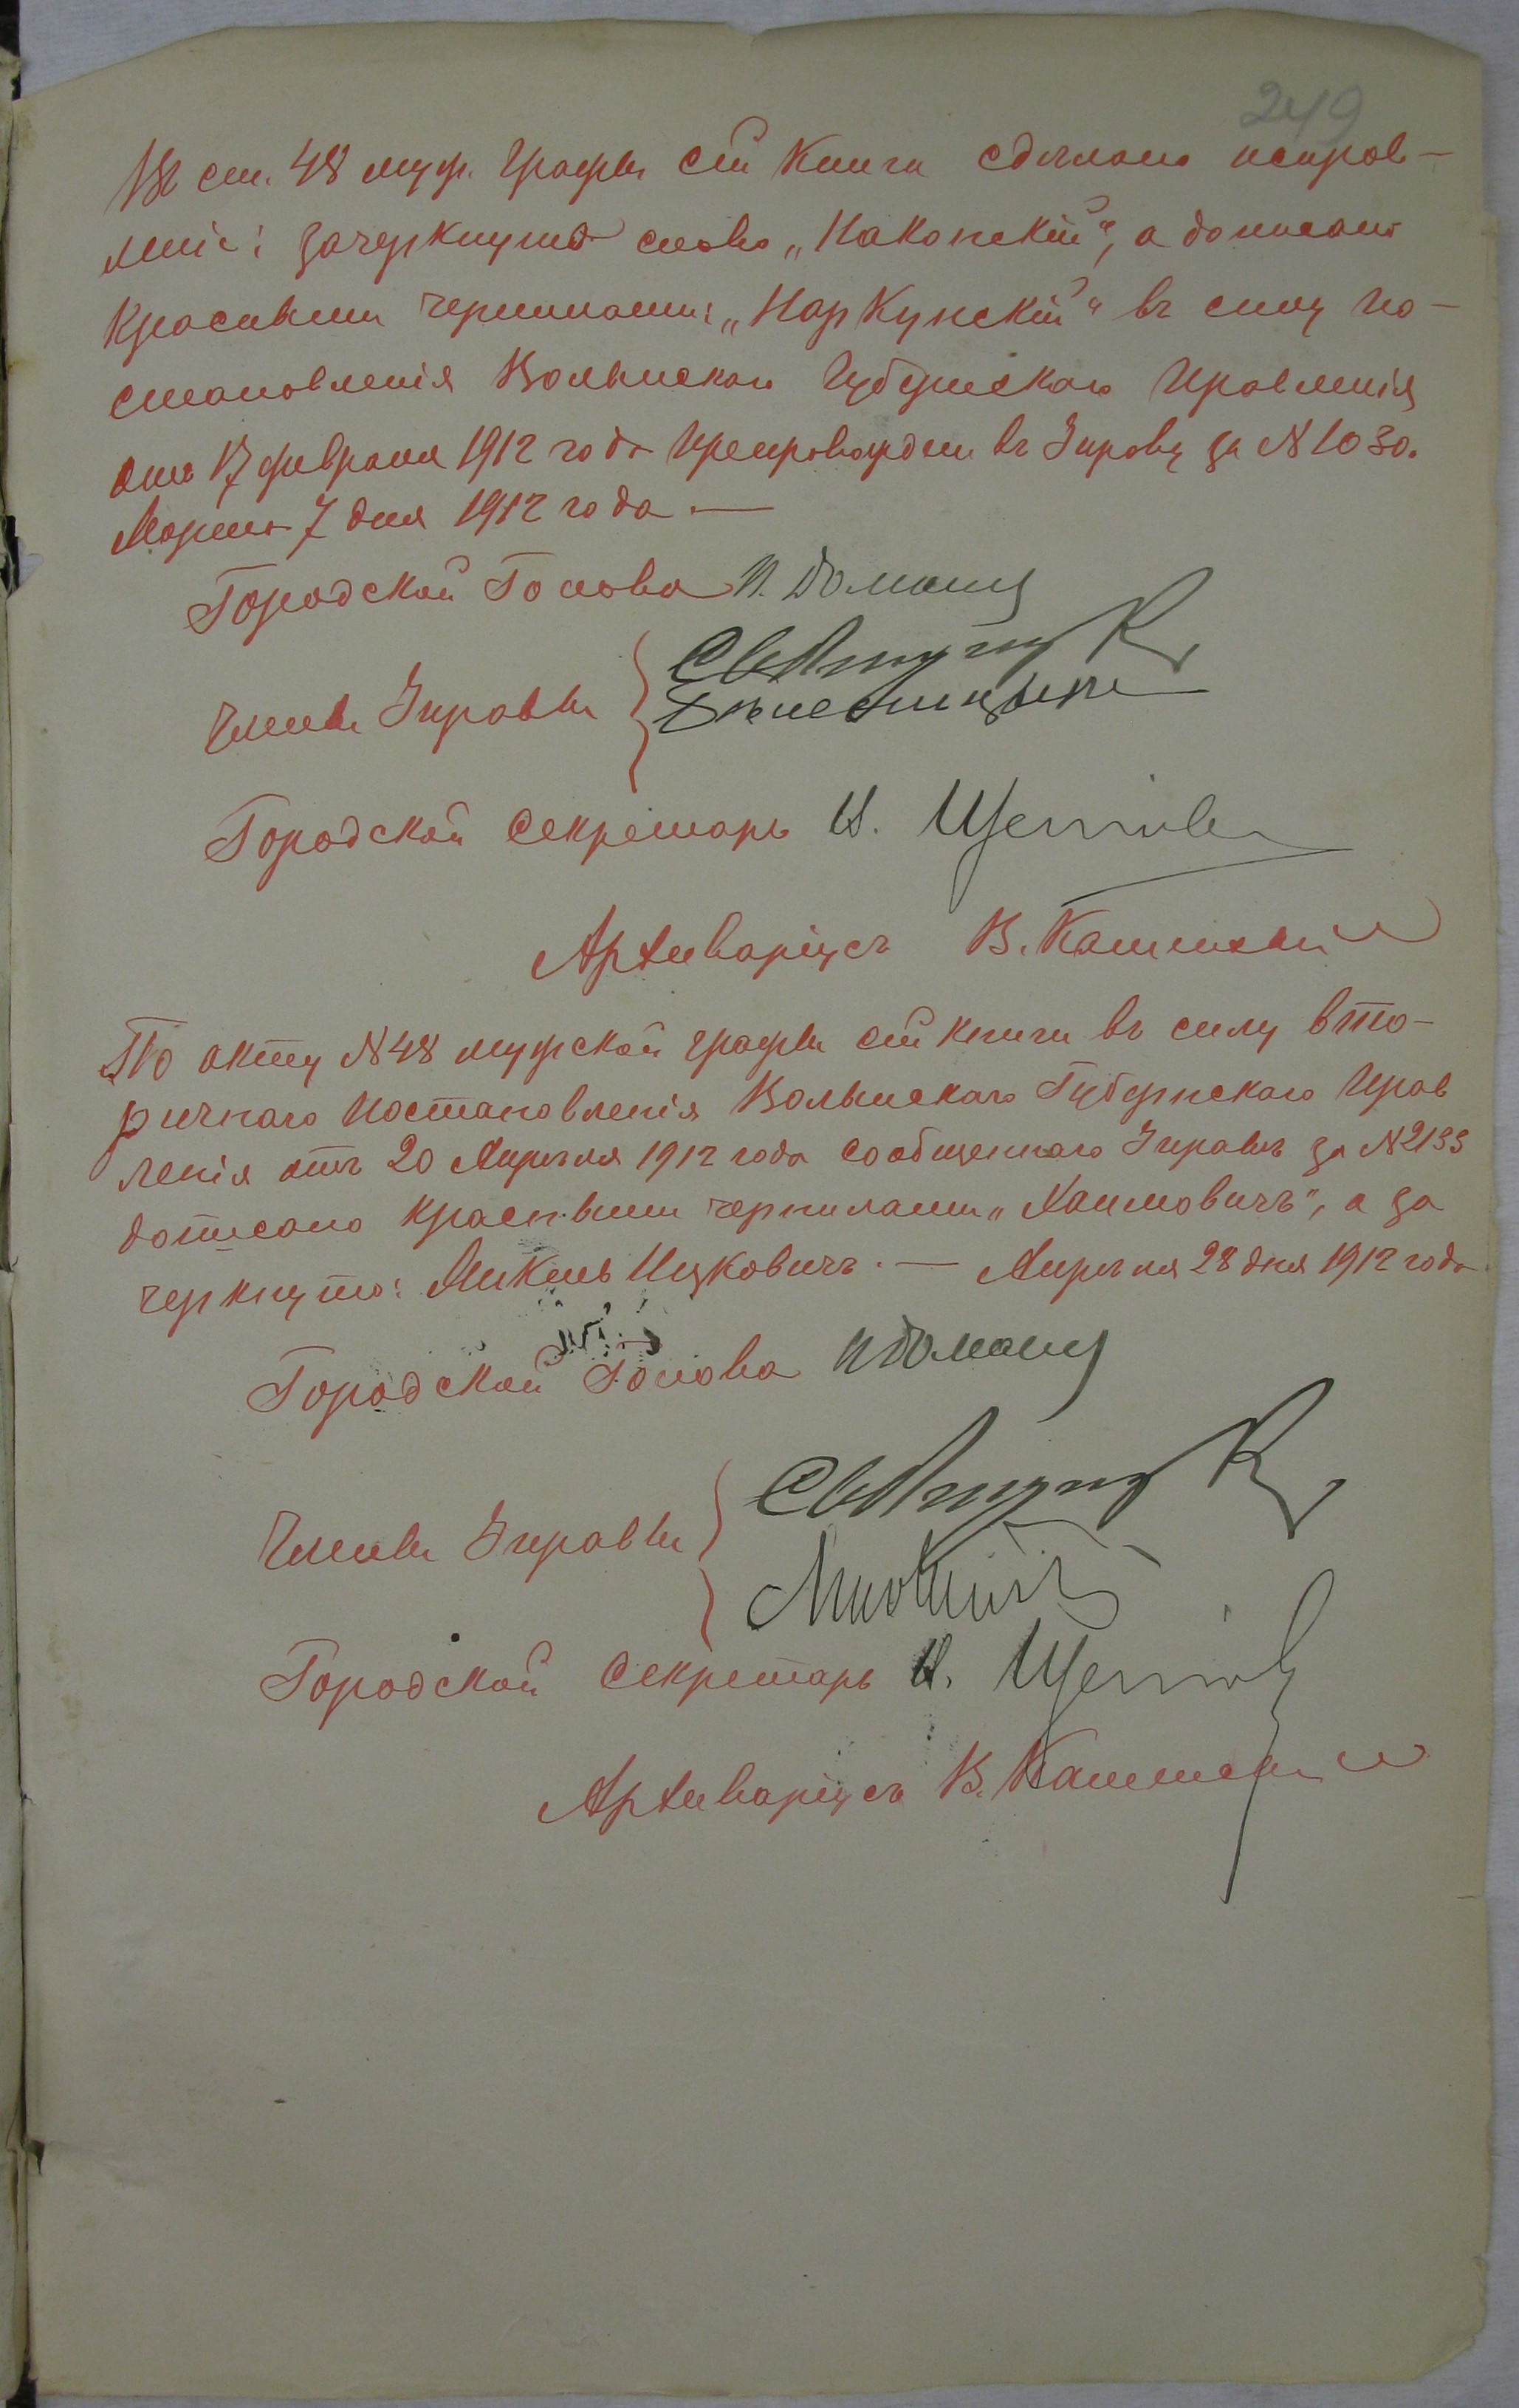 249
Въ ст. 48 муж. графы сей книги сдѣлано исправ-
леніе: зачеркнуто слово „Наконскій", а дописано
красными чернилами: „Наркунскій" въ силу по-
становленія Волынскаго Губернскаго Правленія
отъ 17 февраля 1912 года препровожден въ Управу за N 1030.
Марта 7 дня 1912 года.—
Городской Голова П. Доманц
Члены Управы
Городской Секретарь И.
Архиваріусъ В.
По акту N 48 мужской графы сей книги въ силу вто-
ричнаго постановленія Волынскаго Губернскаго Прав
ленія отъ 20 Апрѣля 1912 года сообщеннаго Управѣ за N 2133
дописано красными чернилами „Хаимовичъ", а за
черкнуто: Микель Ицковичъ.— Апрѣля 28 дня 1912 года.
Городской Голова П Доманц
Члены Управы
Городской Секретарь И.
Архиваріусъ В.